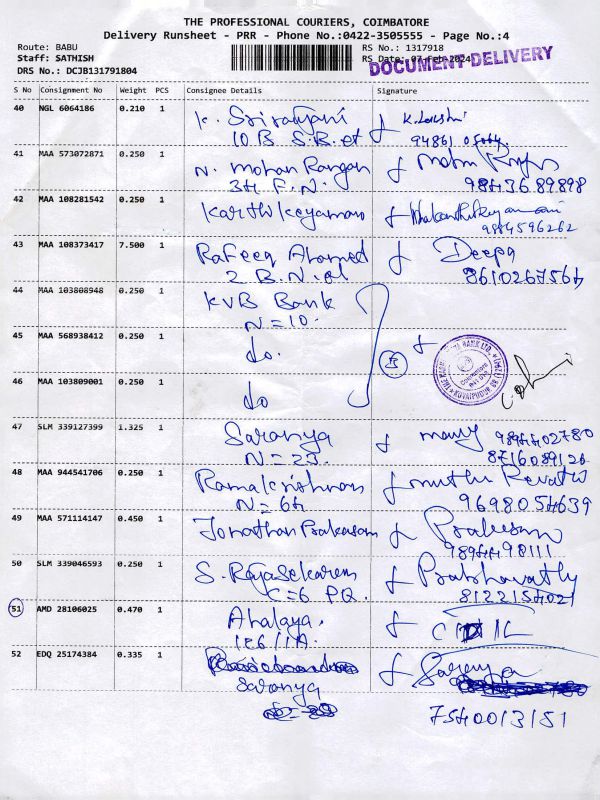 THE PROFESSIONAL COURIERS, COIMBATORE
Delivery Runsheet - PRR - Phone No.:0422-3505555 - Page No.:4
Route: BABU RS No.: 1317918
Staff: SATHISH RS Date: 07-Feb-2024
DRS No.: DCJB131791804
DOCUMENT DELIVERY
S No Consignment No Weight PCS Consignee Details Signature
40 NGL 6064186 0.210 1 K.
10 B S.B. 94861
41 MAA 573072871 0.250 1 N. Mohan Rangan
34 F.N. 9843689898
42 MAA 108281542 0.250 1 Karthikeyaman
9884596262
43 MAA 108373417 7.500 1 Rafeeq Ahamed Deepa
2 B.N. 8610267564
44 MAA 103808948 0.250 1 KVB Bank
N=10.
45 MAA 568938412 0.250 1 do.
46 MAA 103809001 0.250 1 do
47 SLM 339127399 1.325 1 Saranya 9894402780
N=23. 8716089120
48 MAA 944541706 0.250 1 Ramakrishnan muthu Revathi
N=64 9698054639
49 MAA 571114147 0.450 1 Jonathan Prakasam
9894498111
50 SLM 339046593 0.250 1 S. Rajasekaren Prabhavathy
C=6 PQ. 8122154021
51 AMD 28106025 0.470 1 Ahalaya.
126/1A.
52 EDQ 25174384 0.335 1 Saranya
Saranya
7540013151